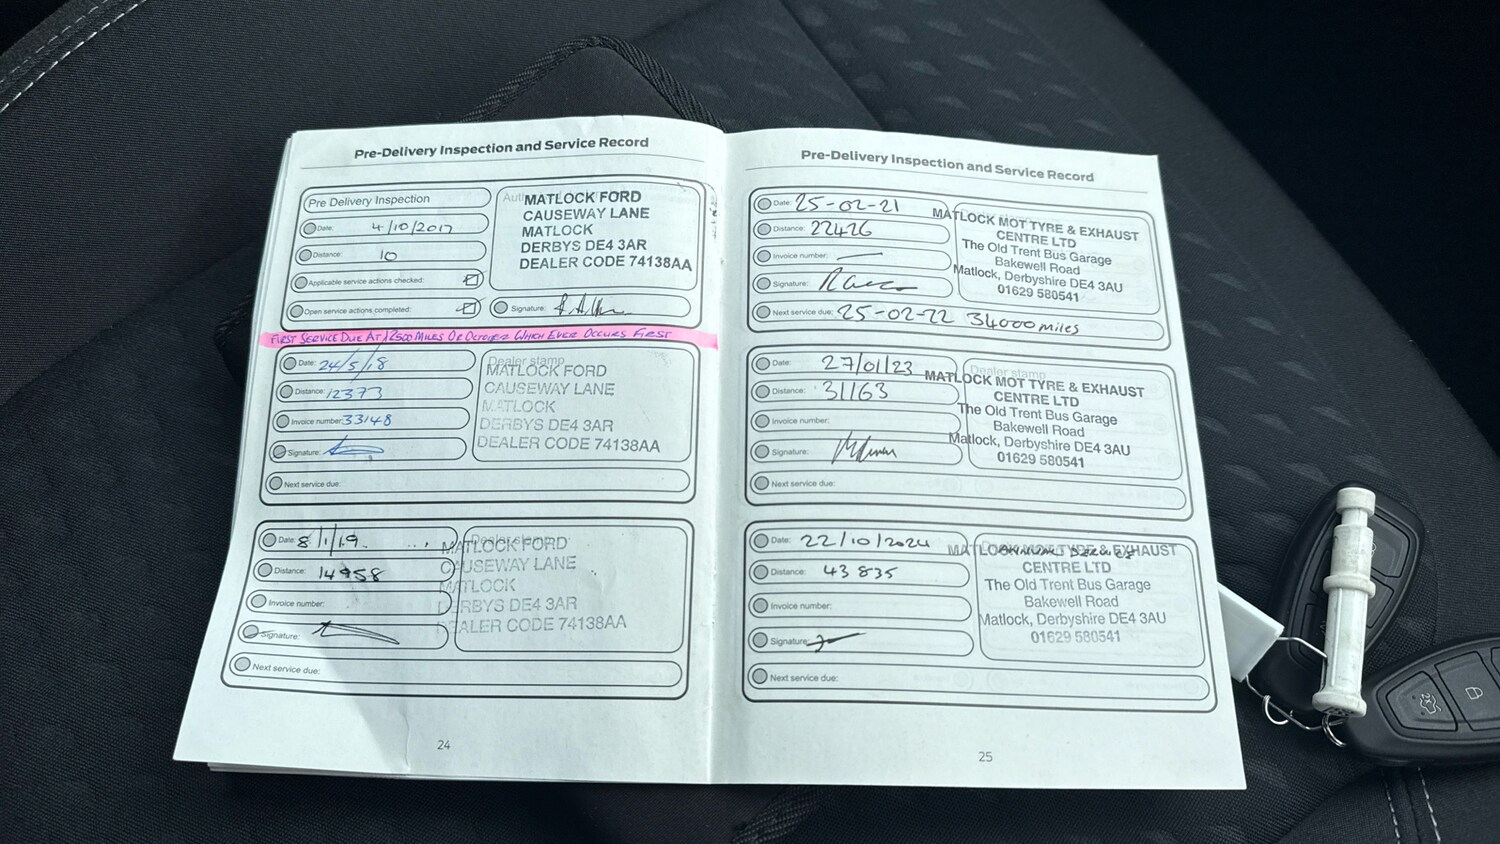 Pre-Delivery Inspection and Service Record
Pre Delivery Inspection
Date: 4/10/2017
Distance: 10
Applicable service actions checked:
Open service actions completed:
MATLOCK FORD
CAUSEWAY LANE
MATLOCK
DERBYS DE4 3AR
DEALER CODE 74138AA
Signature:
FIRST SERVICE DUE AT 12500 MILES OR OCTOBER WHICH EVER OCCURS FIRST
Date: 24/5/18
Distance: 12377
Invoice number: 33148
Signature:
Next service due:
Dealer stamp
MATLOCK FORD
CAUSEWAY LANE
MATLOCK
DERBYS DE4 3AR
DEALER CODE 74138AA
Date: 8/1/19
Distance: 14958
Invoice number:
Signature:
Next service due:
Dealer stamp
MATLOCK FORD
CAUSEWAY LANE
MATLOCK
DERBYS DE4 3AR
DEALER CODE 74138AA
24
Pre-Delivery Inspection and Service Record
Date: 25-02-21
Distance: 22426
Invoice number:
Signature:
Next service due: 25-02-22 34000 miles
MATLOCK MOT TYRE & EXHAUST
CENTRE LTD
The Old Trent Bus Garage
Bakewell Road
Matlock, Derbyshire DE4 3AU
01629 580541
Date: 27/01/23
Distance: 31163
Invoice number:
Signature:
Next service due:
Dealer stamp
MATLOCK MOT TYRE & EXHAUST
CENTRE LTD
The Old Trent Bus Garage
Bakewell Road
Matlock, Derbyshire DE4 3AU
01629 580541
Date: 22/10/2024
Distance: 43835
Invoice number:
Signature:
Next service due:
ANNUAL SERVICE
MATLOCK MOT TYRE & EXHAUST
CENTRE LTD
The Old Trent Bus Garage
Bakewell Road
Matlock, Derbyshire DE4 3AU
01629 580541
25